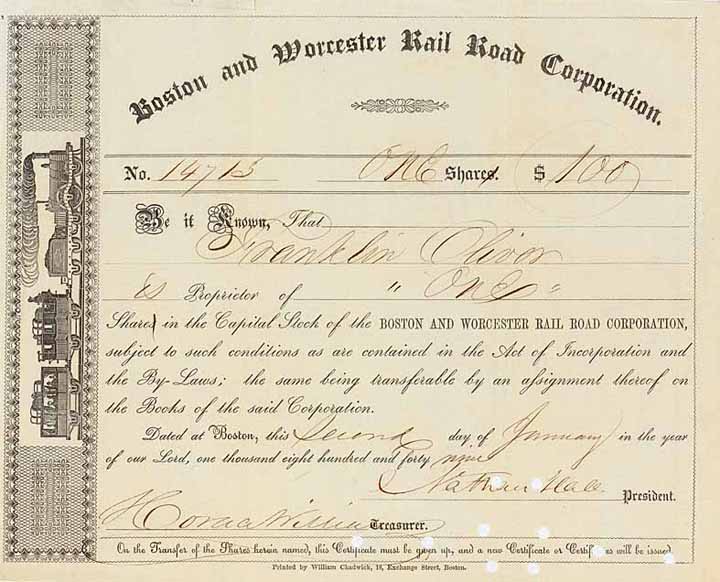 Boston and Worcester Rail Road Corporation.
No. 14713 ONE Shares. $ 100
Be it Known, That
Franklin Oliver
is Proprietor of " One "
Shares in the Capital Stock of the BOSTON AND WORCESTER RAIL ROAD CORPORATION,
subject to such conditions as are contained in the Act of Incorporation and
the By-Laws; the same being transferable by an assignment thereof on
the Books of the said Corporation.
Dated at Boston, this Second day of January in the year
of our Lord, one thousand eight hundred and forty nine
Nathan Hale President.
Horace Treasurer.
On the Transfer of the Shares herein named, this Certificate must be given up, and a new Certificate or Certificates will be issued.
Printed by William Chadwick, 18, Exchange Street, Boston.